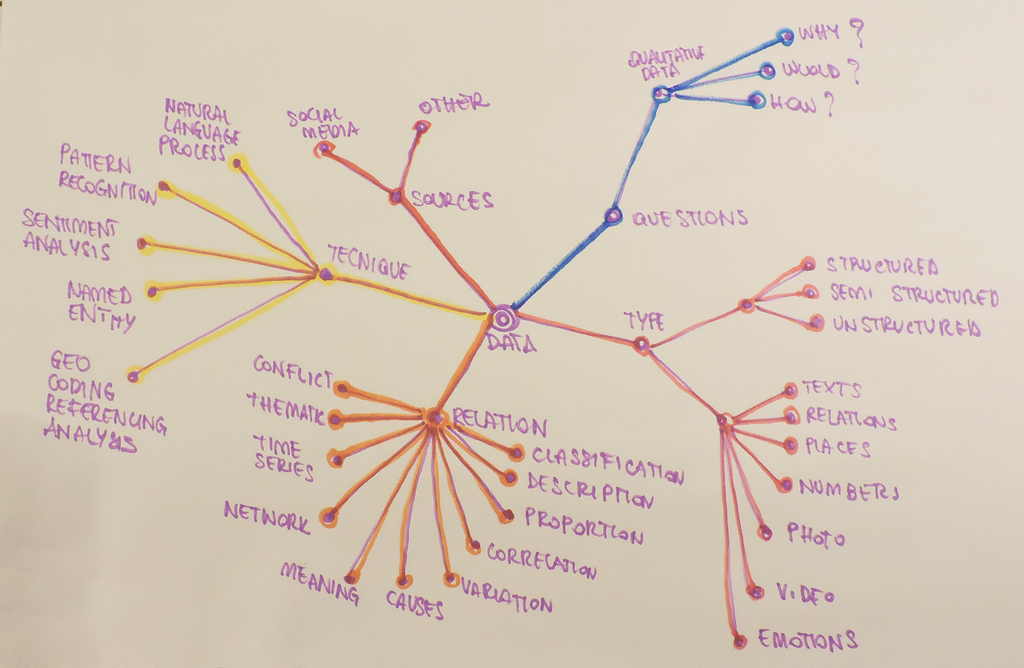 QUALITATIVE
DATA
WHY?
WOULD?
HOW?
QUESTIONS
SOCIAL
MEDIA
OTHER
SOURCES
NATURAL
LANGUAGE
PROCESS
PATTERN
RECOGNITION
SENTIMENT
ANALYSIS
NAMED
ENTITY
GEO
CODING
REFERENCING
ANALYSIS
TECNIQUE
DATA
TYPE
STRUCTURED
SEMI STRUCTURED
UNSTRUCTURED
TEXTS
RELATIONS
PLACES
NUMBERS
PHOTO
VIDEO
EMOTIONS
RELATION
CONFLICT
THEMATIC
TIME
SERIES
NETWORK
MEANING
CAUSES
VARIATION
CORRELATION
PROPORTION
DESCRIPTION
CLASSIFICATION